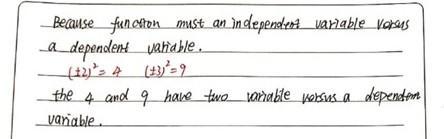 Because function must an independent variable versus
a dependent variable.
(±2)² = 4 (±3)² = 9
the 4 and 9 have two variable versus a dependent
variable.